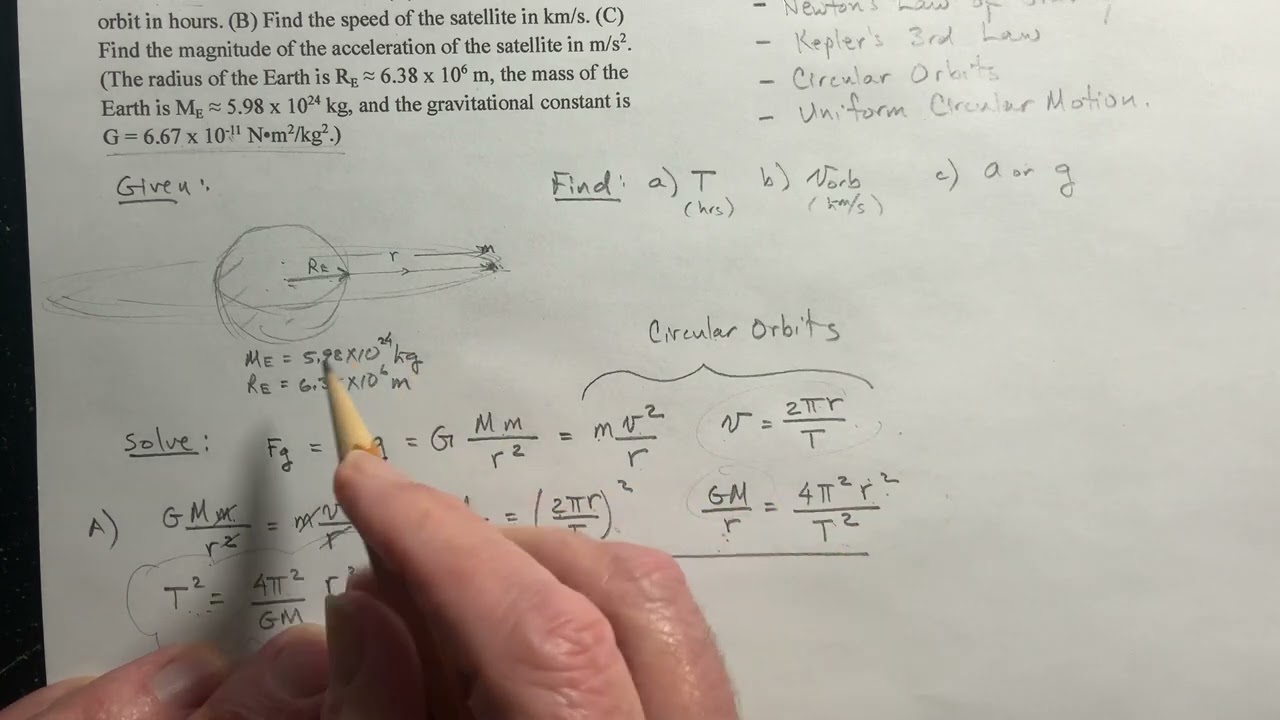 orbit in hours. (B) Find the speed of the satellite in km/s. (C)
Find the magnitude of the acceleration of the satellite in m/s².
(The radius of the Earth is R_E ≈ 6.38 x 10⁶ m, the mass of the
Earth is M_E ≈ 5.98 x 10²⁴ kg, and the gravitational constant is
G = 6.67 x 10⁻¹¹ N•m²/kg².)
- Newton's Law of
- Kepler's 3rd Law
- Circular Orbits
- Uniform Circular Motion.
Given:
Find: a) T b) v_orb c) a or g
(hrs) (km/s)
R_E r m
M_E = 5.98 x 10²⁴ kg
R_E = 6.3 x 10⁶ m
Circular Orbits
Solve: F_g = g = G Mm/r² = m v²/r v = 2πr/T
A) GMm/r² = mv/r = (2πr/T)² GM/r = 4π²r²/T²
T² = 4π²/GM r